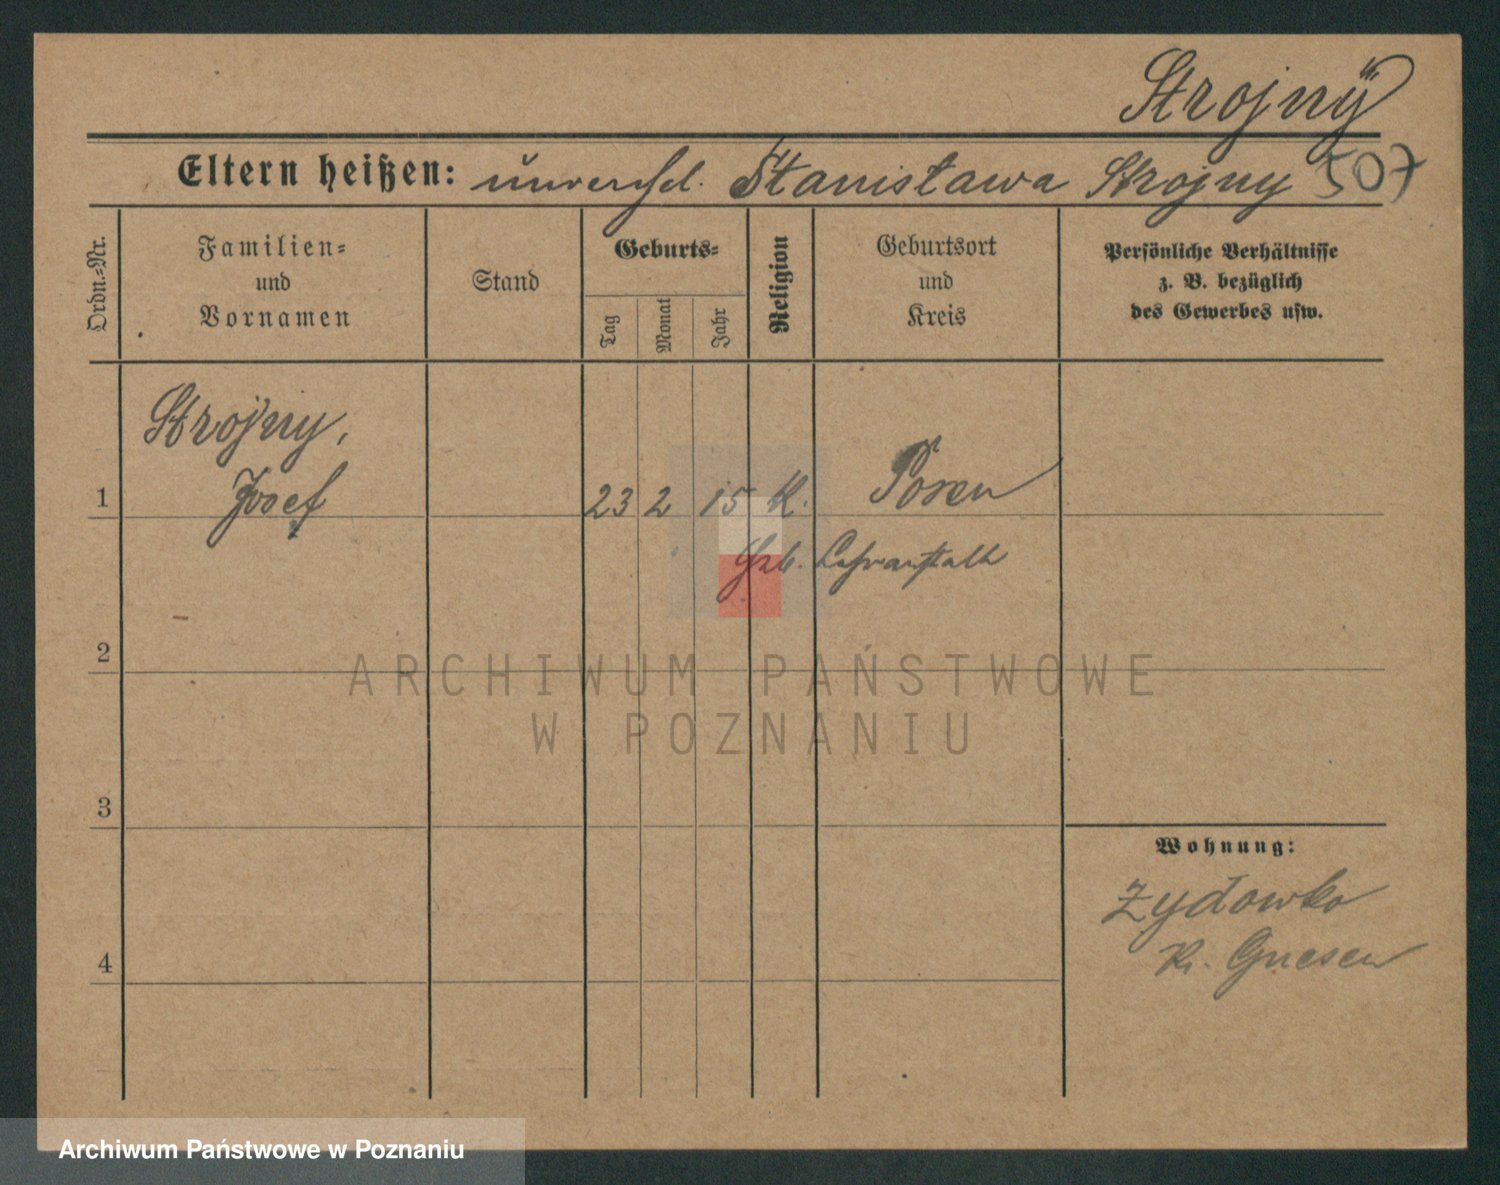 Strojny
Eltern heißen: unverehel. Stanisława Strojny 507
Ordn.=Nr.
Familien=
und
Vornamen
Stand
Geburts=
Tag
Monat
Jahr
Religion
Geburtsort
und
Kreis
Persönliche Verhältnisse
z. B. bezüglich
des Gewerbes usw.
Strojny,
1 Josef 23 2 15 K. Posen
Geb. Lehranstalt
2
ARCHIWUM PAŃSTWOWE
W POZNANIU
3
Wohnung:
Zydowko
4
Kr. Gnesen
Archiwum Państwowe w Poznaniu